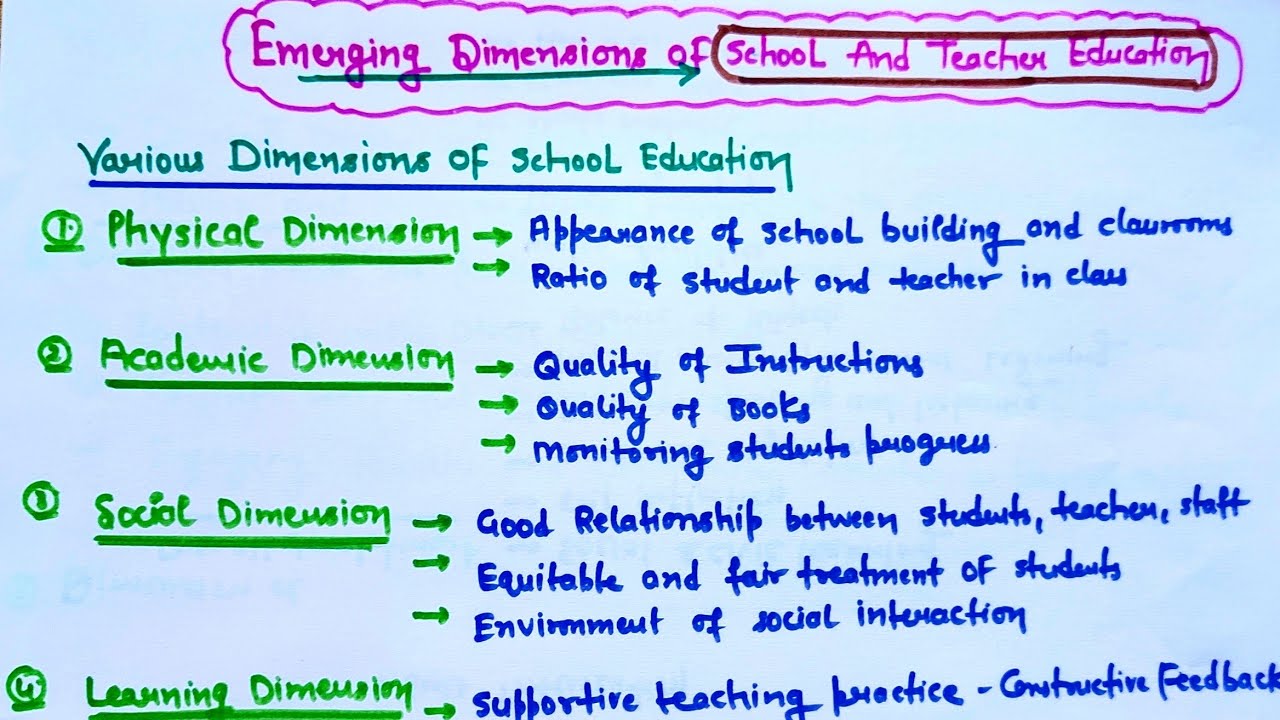 Emerging Dimensions of School And Teacher Education
Various Dimensions of School Education
1. Physical Dimension → Appearance of school building and classrooms
→ Ratio of student and teacher in class
2 Academic Dimension → Quality of Instructions
→ Quality of Books
→ Monitoring students progress
3 Social Dimension → Good Relationship between students, teacher, staff
→ Equitable and fair treatment of students
→ Environment of social interaction
4 Learning Dimension → supportive teaching practice - Constructive Feedback